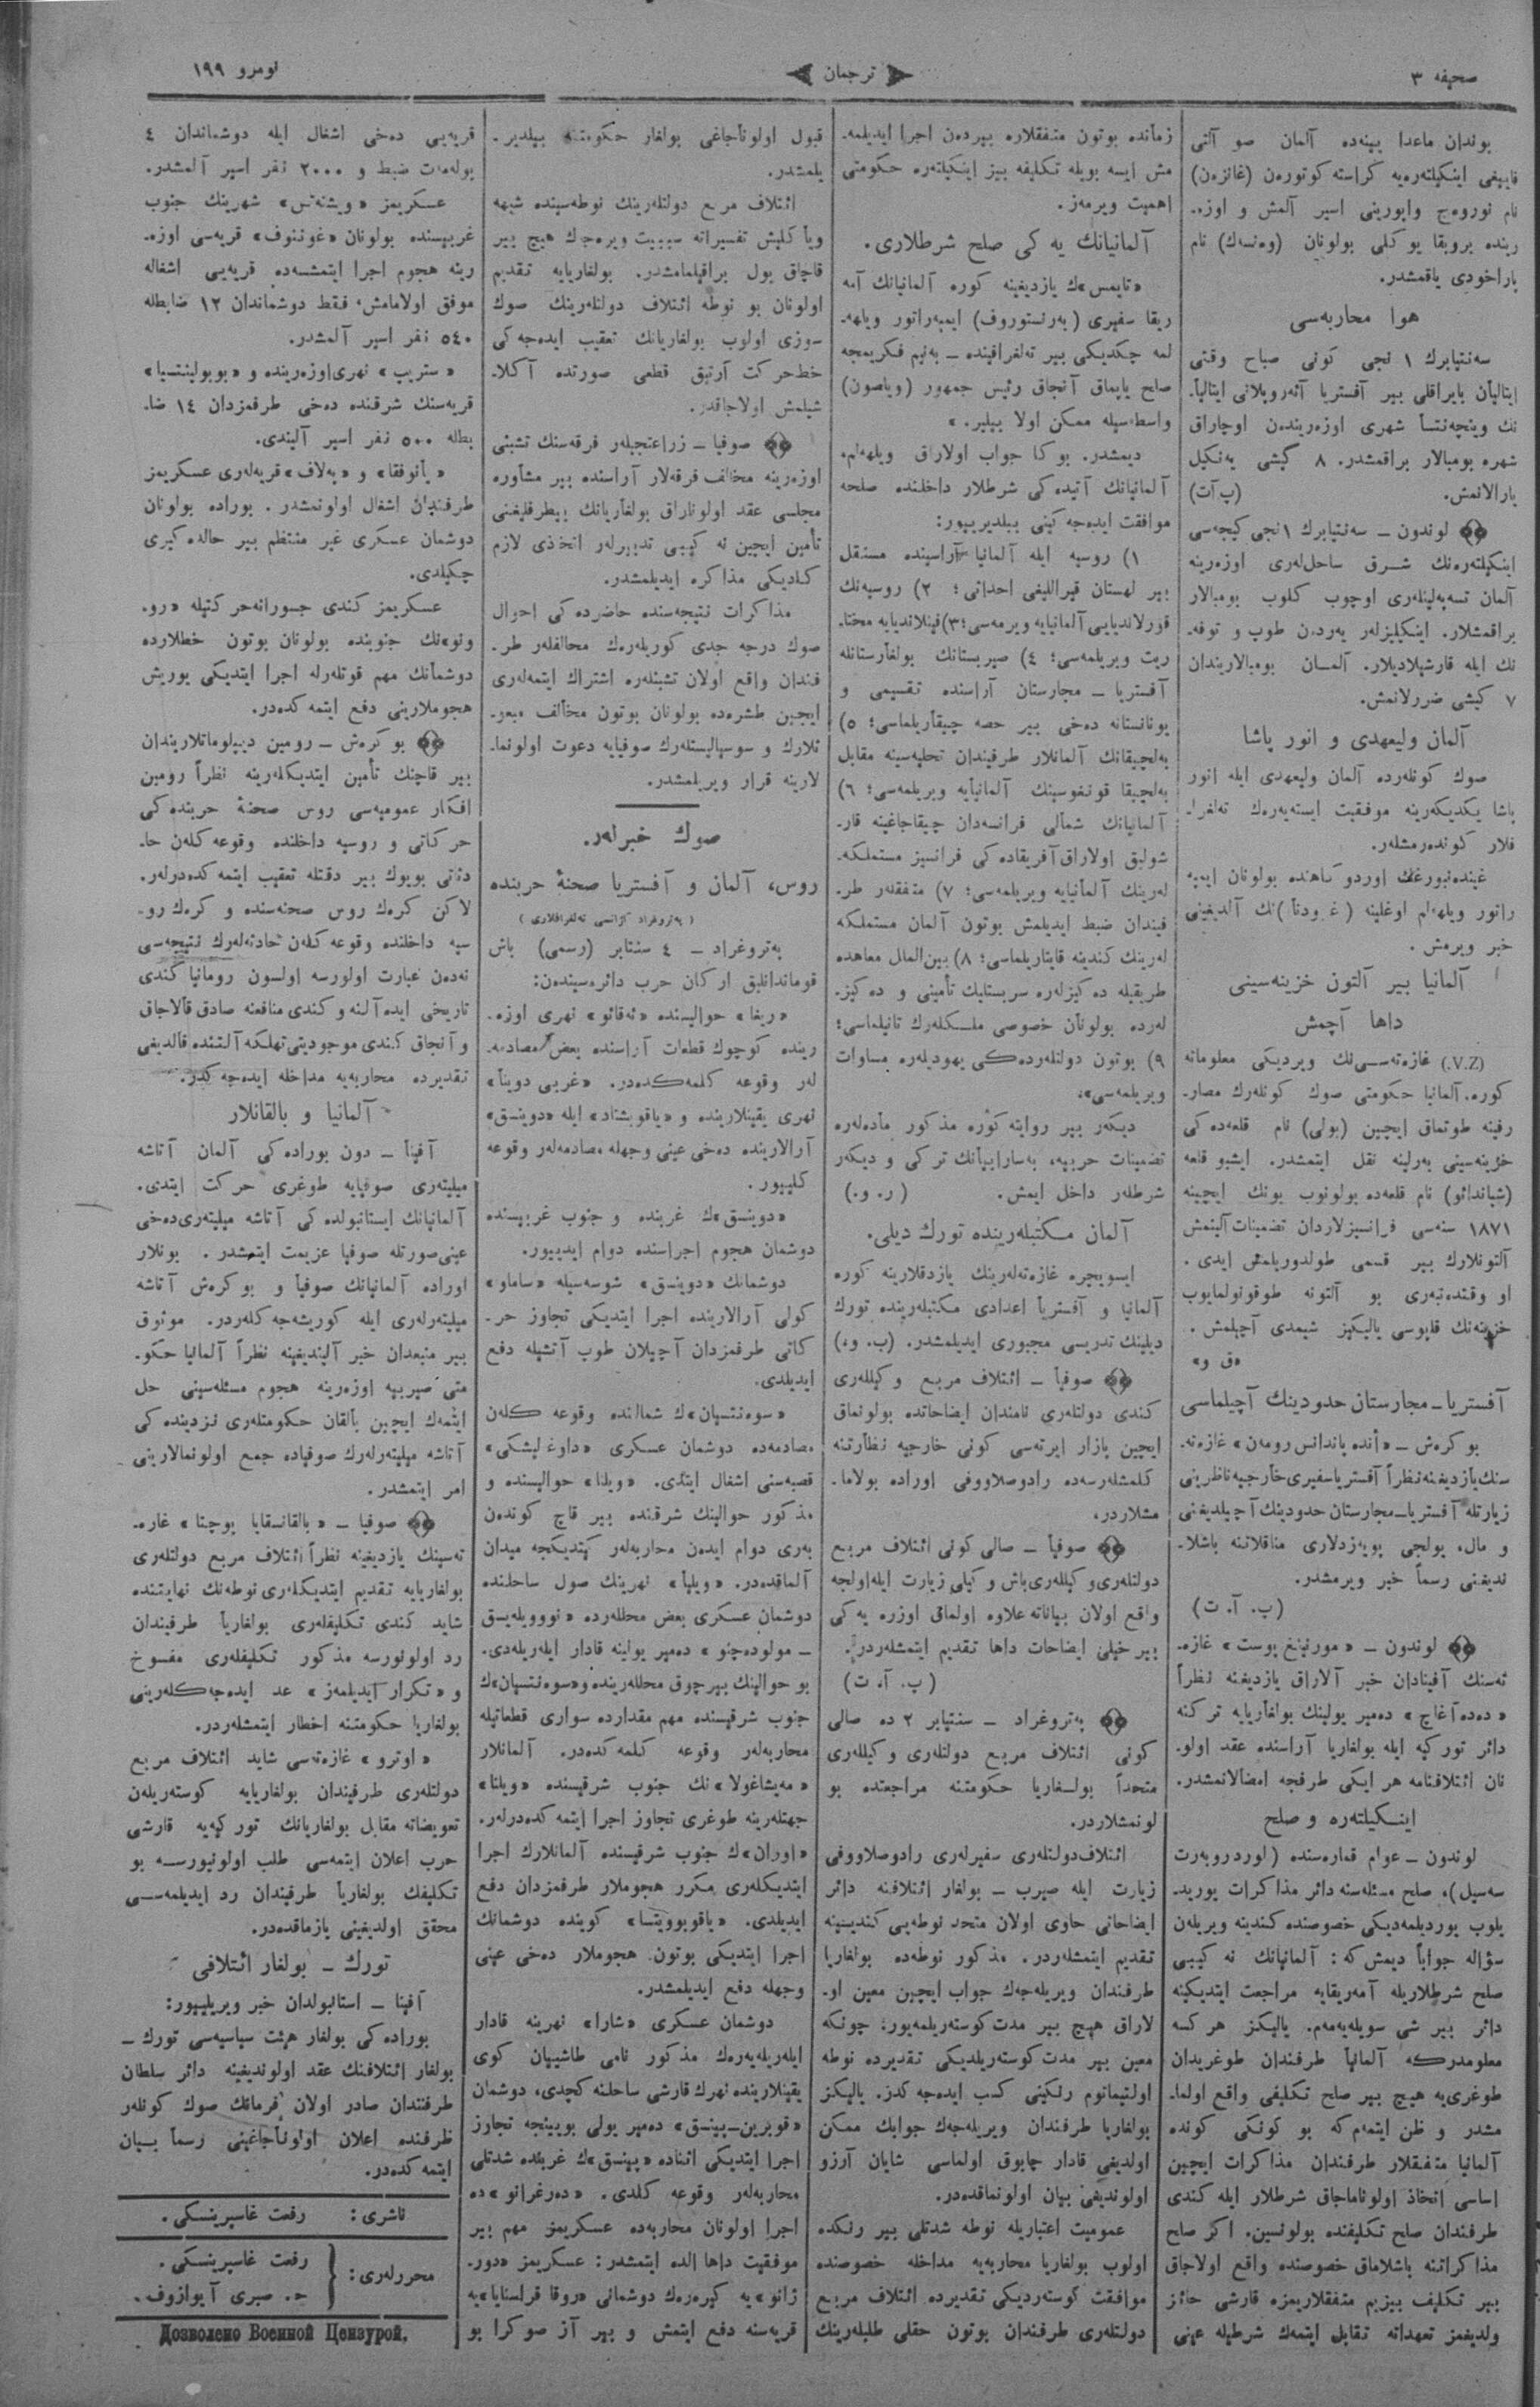 صحیفه ٣
ترجمان
نومرو ١٩٩
بوندان ماعدا یینه‌ده آلمان صو آلتی
قاییغی اینكیلتره‌یه كراسته كوتورەن (غانزەن)
نام نوروەج واپورینی اسیر آلمش و اوزه‌ـ
رینده بروبقا یوكلی بولونان (وەنسەك) نام
پاراخودی یاقمشدر.
هوا محاربه‌سی
سەنتیابرك ١ نجی كونی صباح وقتی
ایتالیان بایراقلی بیر آفستریا آئەروپلانی ایتالیاـ
نك ویتچەنتسا شهری اوزەریندن اوچاراق
شهره بومبالار براقمشدر. ٨ كیشی یەنكیل
یارالانمش. (پ آت)
لوندون ــ سەنتیابرك ١ نجی كیجه‌سی
اینكیلتره‌نك شرق ساحل‌لەری اوزەرینه
آلمان تسەپەلینلەری اوچوب كلوب بومبالار
براقمشلار. اینكیلیزلەر یەردن طوب و توفەـ
نك ایله قارشیلادیلار. آلمان بومبالاریندان
٧ كیشی ضررلانمش.
آلمان ولیعهدی و انور پاشا
صوك كونلەرده آلمان ولیعهدی ایله انور
پاشا یكدیكەرینه موفقیت ایستەیەرەك تەلغراـ
فلار كوندەرمشلەر.
خبر ویرمش.
آلمانیا بیر آلتون خزینه‌سینی
داها آچمش
(V.Z.) غازه‌ته‌سی‌نك ویردیكی معلوماته
كوره، آلمانیا حكومتی صوك كونلەرك مصارـ
رفینه طوتماق ایچین (یولی) نام قلعەده‌كی
خزینه‌سینی بەرلینه نقل ایتمشدر. ایشبو قلعه
(شپاندائو) نام قلعەده بولونوب بونك ایچینه
١٨٧١ سنه‌سی فرانسیزلاردان تضمینات آلینمش
آلتونلارك بیر قسمی طولدوریلمش ایدی.
او وقتدەنبەری بو آلتونه طوقونولمایوب
خزینه‌نك قاپوسی یالیكیز شیمدی آچیلمش.
«ق و»
آفستریا ــ مجارستان حدودینك آچیلماسی
بوكرەش ــ «أندەپاندانس رومەن» غازه‌ته‌ـ
سنك یازدیغنه نظراً آفستریا سفیری خارجیه ناظرینی
زیارتله آفستریا ــ مجارستان حدودینك آچیلدیغنی
و مال، یولجی پویەزدلاری مناقلاتنه باشلاـ
ندیغنی رسماً خبر ویرمشدر.
(پ. آ. ت)
لوندون ــ «مورنینغ پوست» غازه‌ـ
ته‌سنك آفینادان خبر آلاراق یازدیغنه نظراً
«دەدەآغاچ» دەمیر یولینك بولغاریایه تركنه
دائر توركیه ایله بولغاریا آراسنده عقد اولوـ
نان ائتلافنامه هر ایكی طرفجه امضالانمشدر.
اینكیلتره و صلح
لوندون ــ عوام قماره‌سنده (لورد روبەرت
سەسیل)، صلح مسئله‌سنه دائر مذاكرات یوریدـ
یلوب یوردیلمەدیكی خصوصنده كندینه ویریلەن
سؤاله جواباً دیمش كه: آلمانیانك نه كیبی
صلح شرطلاریله آمەریقایه مراجعت ایتدیكینه
دائر بیر شی سویلەیەمەم. یالیكز هر كسه
معلومدر كه آلمانیا طرفندان طوغریدان
طوغری‌یه هیچ بیر صلح تكلیفی واقع اولماـ
مشدر و ظن ایتمەم كه بو كونكی كونده
آلمانیا متفقلار طرفندان مذاكرات ایچین
اساسی اتخاذ اولوناماجاق شرطلار ایله كندی
طرفندان صلح تكلیفنده بولونسین. اكر صلح
مذاكراتنه باشلاماق خصوصنده واقع اولاجاق
بیر تكلیف بیزیم متفقلاریمزه قارشی حائز
ولدیغمز تعهداته تقابل ایتمەك شرطیله عینی
زمانده بوتون متفقلاره بیردەن اجرا ایدیلمەـ
مش ایسه بویله تكلیفه بیز اینكیلتره حكومتی
اهمیت ویرمەز.
آلمانیانك یه‌كی صلح شرطلاری.
«تایمس»ك یازدیغینه كوره آلمانیانك آمەـ
ریقا سفیری (بەرنستوروف) ایمپەراتور ویلهەـ
لمه چكدیكی بیر تەلغرافینده ــ بەنیم فكریمجه
صلح یاپماق آنجاق رئیس جمهور (ویلصون)
واسطه‌سیله ممكن اولا بیلیر.»
دیمشدر. بوكا جواب اولاراق ویلهەلم،
آلمانیانك آتیده‌كی شرطلار داخلنده صلحه
موافقت ایده‌جەكینی بیلدیرییور:
١) روسیه ایله آلمانیا آراسینده مستقل
بیر لهستان قیراللیغی احداثی؛ ٢) روسیه‌نك
قورلاندیایی آلمانیایه ویرمه‌سی؛ ٣) فینلاندیایه مختاـ
ریت ویریلمه‌سی؛ ٤) صیربستانك بولغارستانله
آفستریا ــ مجارستان آراسنده تقسیمی و
یونانستانه دەخی بیر حصه چیقاریلماسی؛ ٥)
بەلچیقانك آلمانلار طرفیندان تخلیه‌سینه مقابل
بەلچیقا قونغوسینك آلمانیایه ویریلمه‌سی؛ ٦)
آلمانیانك شمالی فرانسەدان چیقاجاغینه قارـ
شولیق اولاراق آفریقاده‌كی فرانسیز مستملكەـ
لەرینك آلمانیایه ویریلمه‌سی؛ ٧) متفقلەر طرـ
فیندان ضبط ایدیلمش بوتون آلمان مستملكه
لەرینك كندینه قایتاریلماسی؛ ٨) بین‌الملل معاهده
طریقیله دەكیزلەره سربستلیك تأمینی و دەكیزـ
لەرده بولونان خصوصی ملكلەرك تانیلماسی؛
٩) بوتون دولتلەرده‌كی یهودیلەره مساوات
ویریلمه‌سی»،
دیكەر بیر روایته كوره مذكور ماده‌لەره
تضمینات حربیه، بەسارابیانك تركی و دیكەر
شرطلەر داخل ایمش. (ر. و.)
آلمان مكتبلەرینده تورك دیلی.
ایسویچره غازه‌ته‌لەرینك یازدقلارینه كوره
آلمانیا و آفستریا اعدادی مكتبلەرینده تورك
دیلینك تدریسی مجبوری ایدیلمشدر. (ب. و.)
صوفیا ــ ائتلاف مربع وكیللەری
كندی دولتلەری نامندان ایضاحاتده بولونماق
ایچین بازار ایرتەسی كونی خارجیه نظارتنه
كلمشلەرسەده رادوصلاووفی اوراده بولاماـ
مشلاردر.
صوفیا ــ صالی كونی ائتلاف مربع
دولتلەری وكیللەری باش وكیلی زیارت ایله اولجه
واقع اولان بیاناته علاوه اولماقی اوزره یه‌كی
بیر خیلی ایضاحات داها تقدیم ایتمشلەردر.
(پ. آ. ت)
پەتروغراد ــ سنتیابر ٢ ده صالی
كونی ائتلاف مربع دولتلەری وكیللەری
متحداً بولغاریا حكومتنه مراجعتده بو
لونمشلاردر.
ائتلاف دولتلەری سفیرلەری رادوصلاووفی
زیارت ایله صیرب ــ بولغار ائتلافنه دائر
ایضاحاتی حاوی اولان متحد نوطەیی كندیسینه
تقدیم ایتمشلەردر. مذكور نوطەده بولغاریا
طرفندان ویریله‌جەك جواب ایچین معین اوـ
لاراق هیچ بیر مدت كوستەریلمەیور؛ چونكه
معین بیر مدت كوستەریلدیكی تقدیرده نوطه
اولتیماتوم رنكینی كسب ایده‌جەكدر. یالیكز
بولغاریا طرفندان ویریله‌جەك جوابك ممكن
اولدیغی قادار چابوق اولماسی شایان آرزو
اولوندیغی بیان اولونماقدەدر.
عمومیت اعتباریله نوطه شدتلی بیر رنكده
اولوب بولغاریا محاربه‌یه مداخله خصوصنده
موافقت كوستەردیكی تقدیرده ائتلاف مربع
دولتلەری طرفندان بوتون حقلی طلبلەرینك
قبول اولوناجاغی بولغار حكومتنه بیلدیرـ
یلمشدر.
ائتلاف مربع دولتلەرینك نوطه‌سینده شبهه
ویا كلیش تفسیراته سببیت ویره‌جك هیچ بیر
قاچاق یول براقیلمامشدر. بولغاریایه تقدیم
اولونان بو نوطه ائتلاف دولتلەرینك صوك
سوزی اولوب بولغاریانك تعقیب ایده‌جەكی
خط حركت آرتیق قطعی صورتده آكلاـ
شیلمش اولاجاقدر.
صوفیا ــ زراعتجیلەر فرقه‌سنك تشبثی
اوزەرینه مخالف فرقەلار آراسنده بیر مشاوره
مجلسی عقد اولوناراق بولغاریانك بیطرفلیغینی
تأمین ایچین نه كیبی تدبیرلەر اتخاذی لازم
كلدیكی مذاكره ایدیلمشدر.
مذاكرات نتیجه‌سنده حاضرده‌كی احوال
صوك درجه جدی كوریلەرەك مخالفلەر طرـ
فندان واقع اولان تشبثلەره اشتراك ایتمەلەری
ایچین طشره‌ده بولونان بوتون مخالف مبعوـ
ثلارك و سوسیالیستلەرك صوفیایه دعوت اولونماـ
لارینه قرار ویریلمشدر.
صوك خبرلەر.
روس، آلمان و آفستریا صحنهٔ حربنده
(پەتروغراد آژانسی تەلغرافلاری)
پەتروغراد ــ ٤ سنتابر (رسمی) باش
قوماندانلیق اركان حرب دائره‌سیندەن:
«ریغا» حوالیسنده «ئەقائو» نهری اوزەـ
رینده كوچوك قطعات آراسنده بعض مصادمەـ
لەر وقوعه كلمەكدەدر. «غربی دوینا»
نهری یقینلارینده و «یاقوبشتاد» ایله «دوینسق»
آرالارینده دەخی عینی وجهله مصادمەلەر وقوعه
كلییور.
«دوینسق»ك غربنده و جنوب غربیسنده
دوشمان هجوم اجراسنده دوام ایدییور.
دوشمانك «دوینسق» شوسه‌سیله «ساماو»
كولی آرالارینده اجرا ایتدیكی تجاوز حرـ
كاتی طرفمزدان آچیلان طوب آتشیله دفع
ایدیلدی.
«سوەنتسیان»ك شمالنده وقوعه كلەن
مصادمەده دوشمان عسكری «داوغەلیشكی»
قصبه‌سنی اشغال ایتدی. «ویلنا» حوالیسنده و
مذكور حوالینك شرقنده بیر قاچ كوندەن
بەری دوام ایدەن محاربه‌لەر كیتدیكجه میدان
آلماقدەدر. «ویلیا» نهرینك صول ساحلنده
دوشمان عسكری بعض محللەرده «نووویلەیسق
ــ مولودەچنو» دەمیر یولینه قادار ایلەریلەدی.
بو حوالینك بیرچوق محللەرینده و «سوەنتسیان»ك
جنوب شرقیسنده مهم مقدارده سواری قطعاتیله
محاربه‌لەر وقوعه كلمەكدەدر. آلمانلار
«مەیشاغولا»نك جنوب شرقیسنده «ویلنا»
جهتلەرینه طوغری تجاوز اجرا ایتمەكدەدرلەر.
«اوران»ك جنوب شرقیسنده آلمانلارك اجرا
ایتدیكلەری مكرر هجوملار طرفمزدان دفع
ایدیلدی. «یاقوبوویتسا» كوینده دوشمانك
اجرا ایتدیكی بوتون هجوملار دەخی عینی
وجهله دفع ایدیلمشدر.
دوشمان عسكری «شارا» نهرینه قادار
ایلەریلەیەرەك مذكور نامی طاشییان كوی
یقینلارینده نهرك قارشی ساحلنه كچدی، دوشمان
«قوبرین ــ پینسق» دەمیر یولی بویینجه تجاوز
اجرا ایتدیكی اثناده «پینسق»ك غربنده شدتلی
محاربه‌لەر وقوعه كلدی. «دەرغرانو»ده
اجرا اولونان محاربه‌ده عسكریمز مهم بیر
موفقیت داها الده ایتمشدر: عسكریمز «دورـ
ژانو»یه كیرەرەك دوشمانی «روقا قراسنایا»یه
قریه‌سنه دفع ایتمش و بیر آز صوكرا بو
قریه‌یی دەخی اشغال ایله دوشماندان ٤
پولەموت ضبط و ٢٠٠٠ نفر اسیر آلمشدر.
عسكریمز «ویشنەتس» شهرینك جنوب
غربیسنده بولونان «غونئوف» قریه‌سی اوزەـ
رینه هجوم اجرا ایتمشسەده قریه‌یی اشغاله
موفق اولامامش، فقط دوشماندان ١٢ ضابطله
٥٤٠ نفر اسیر آلمشدر.
«ستریپ» نهری اوزەرینده و «بوبولینتسیا»
قریه‌سنك شرقنده دەخی طرفمزدان ١٤ ضاـ
بطله ٥٠٠ نفر اسیر آلیندی.
«یانوفقا» و «بەلاف» قریه‌لەری عسكریمز
طرفندان اشغال اولونمشدر. بوراده بولونان
دوشمان عسكری غیر منتظم بیر حالده كیری
چكیلدی.
عسكریمز كندی جسورانه حركتیله «روـ
ونو»نك جنوبنده بولونان بوتون خطلارده
دوشمانك مهم قوتلەرله اجرا ایتدیكی یوریش
هجوملارینی دفع ایتمەكدەدر.
بوكرەش ــ رومین دیپلوماتلاریندان
بیر قاچنك تأمین ایتدیكلەرینه نظراً رومین
افكار عمومیه‌سی روس صحنهٔ حربنده‌كی
حركاتی و روسیه داخلنده وقوعه كلەن حاـ
دثاتی بویوك بیر دقتله تعقیب ایتمەكدەدرلەر.
لاكن كرەك روس صحنه‌سنده و كرەك روـ
سیه داخلنده وقوعه كلەن حادثه‌لەرك نتیجه‌سی
نەدەن عبارت اولورسه اولسون رومانیا كندی
تاریخی ایدەآلنه و كندی منافعنه صادق قالاجاق
و آنجاق كندی موجودیتی تهلكه آلتنده قالدیغی
تقدیرده محاربه‌یه مداخله ایده‌جەكدر.
آلمانیا و بالقانلار
آفینا ــ دون بوراده‌كی آلمان آتاشه
میلیتەری صوفیایه طوغری حركت ایتدی.
آلمانیانك ایستانبولده‌كی آتاشه میلیتەری دەخی
عینی صورتله صوفیا عزیمت ایتمشدر. بونلار
اوراده آلمانیانك صوفیا و بوكرەش آتاشه
میلیتەرلەری ایله كوریشه‌جەكلەردر. موثوق
بیر منبعدان خبر آلیندیغینه نظراً آلمانیا حكوـ
متی صیربیه اوزەرینه هجوم مسئله‌سینی حل
ایتمەك ایچین بالقان حكومتلەری نزدینده‌كی
آتاشه میلیتەرلەرك صوفیاده جمع اولونمالارینی
امر ایتمشدر.
صوفیا ــ «بالقانسقایا پوچتا» غازه‌ـ
ته‌سینك یازدیغینه نظراً ائتلاف مربع دولتلەری
بولغاریایه تقدیم ایتدیكلەری نوطه‌نك نهایتنده
شاید كندی تكلیفلەری بولغاریا طرفیندان
رد اولونورسه مذكور تكلیفلەری مفسوخ
و «تكرار ایدیلمەز» عد ایده‌جەكلەرینی
بولغاریا حكومتنه اخطار ایتمشلەردر.
«اوترو» غازه‌ته‌سی شاید ائتلاف مربع
دولتلەری طرفیندان بولغاریایه كوستەریلەن
تعویضاته مقابل بولغاریانك توركیه‌یه قارشی
حرب اعلان ایتمه‌سی طلب اولونیورسه بو
تكلیفك بولغاریا طرفیندان رد ایدیلمه‌سی
محقق اولدیغینی یازماقدەدر.
تورك ــ بولغار ائتلافی
آفینا ــ استانبولدان خبر ویریلییور:
بوراده‌كی بولغار هیئت سیاسیه‌سی تورك ــ
بولغار ائتلافنك عقد اولوندیغینه دائر سلطان
طرفندان صادر اولان فرمانك صوك كونلەر
ظرفنده اعلان اولوناجاغینی رسماً بیان
ایتمەكدەدر.
ناشری: رفعت غاسپرینسكی.
محررلەری: رفعت غاسپرینسكی.
ح. صبری آیوازوف.
Дозволено Военной Цензурой.